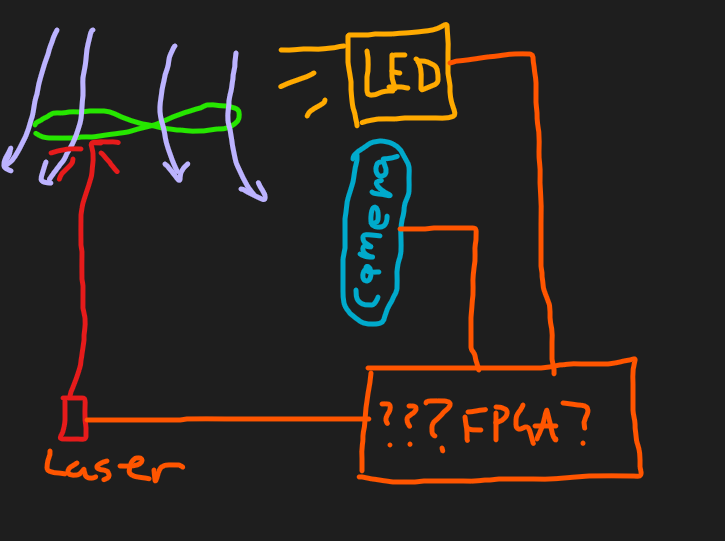 LED
Camera
???FPGA?
Laser